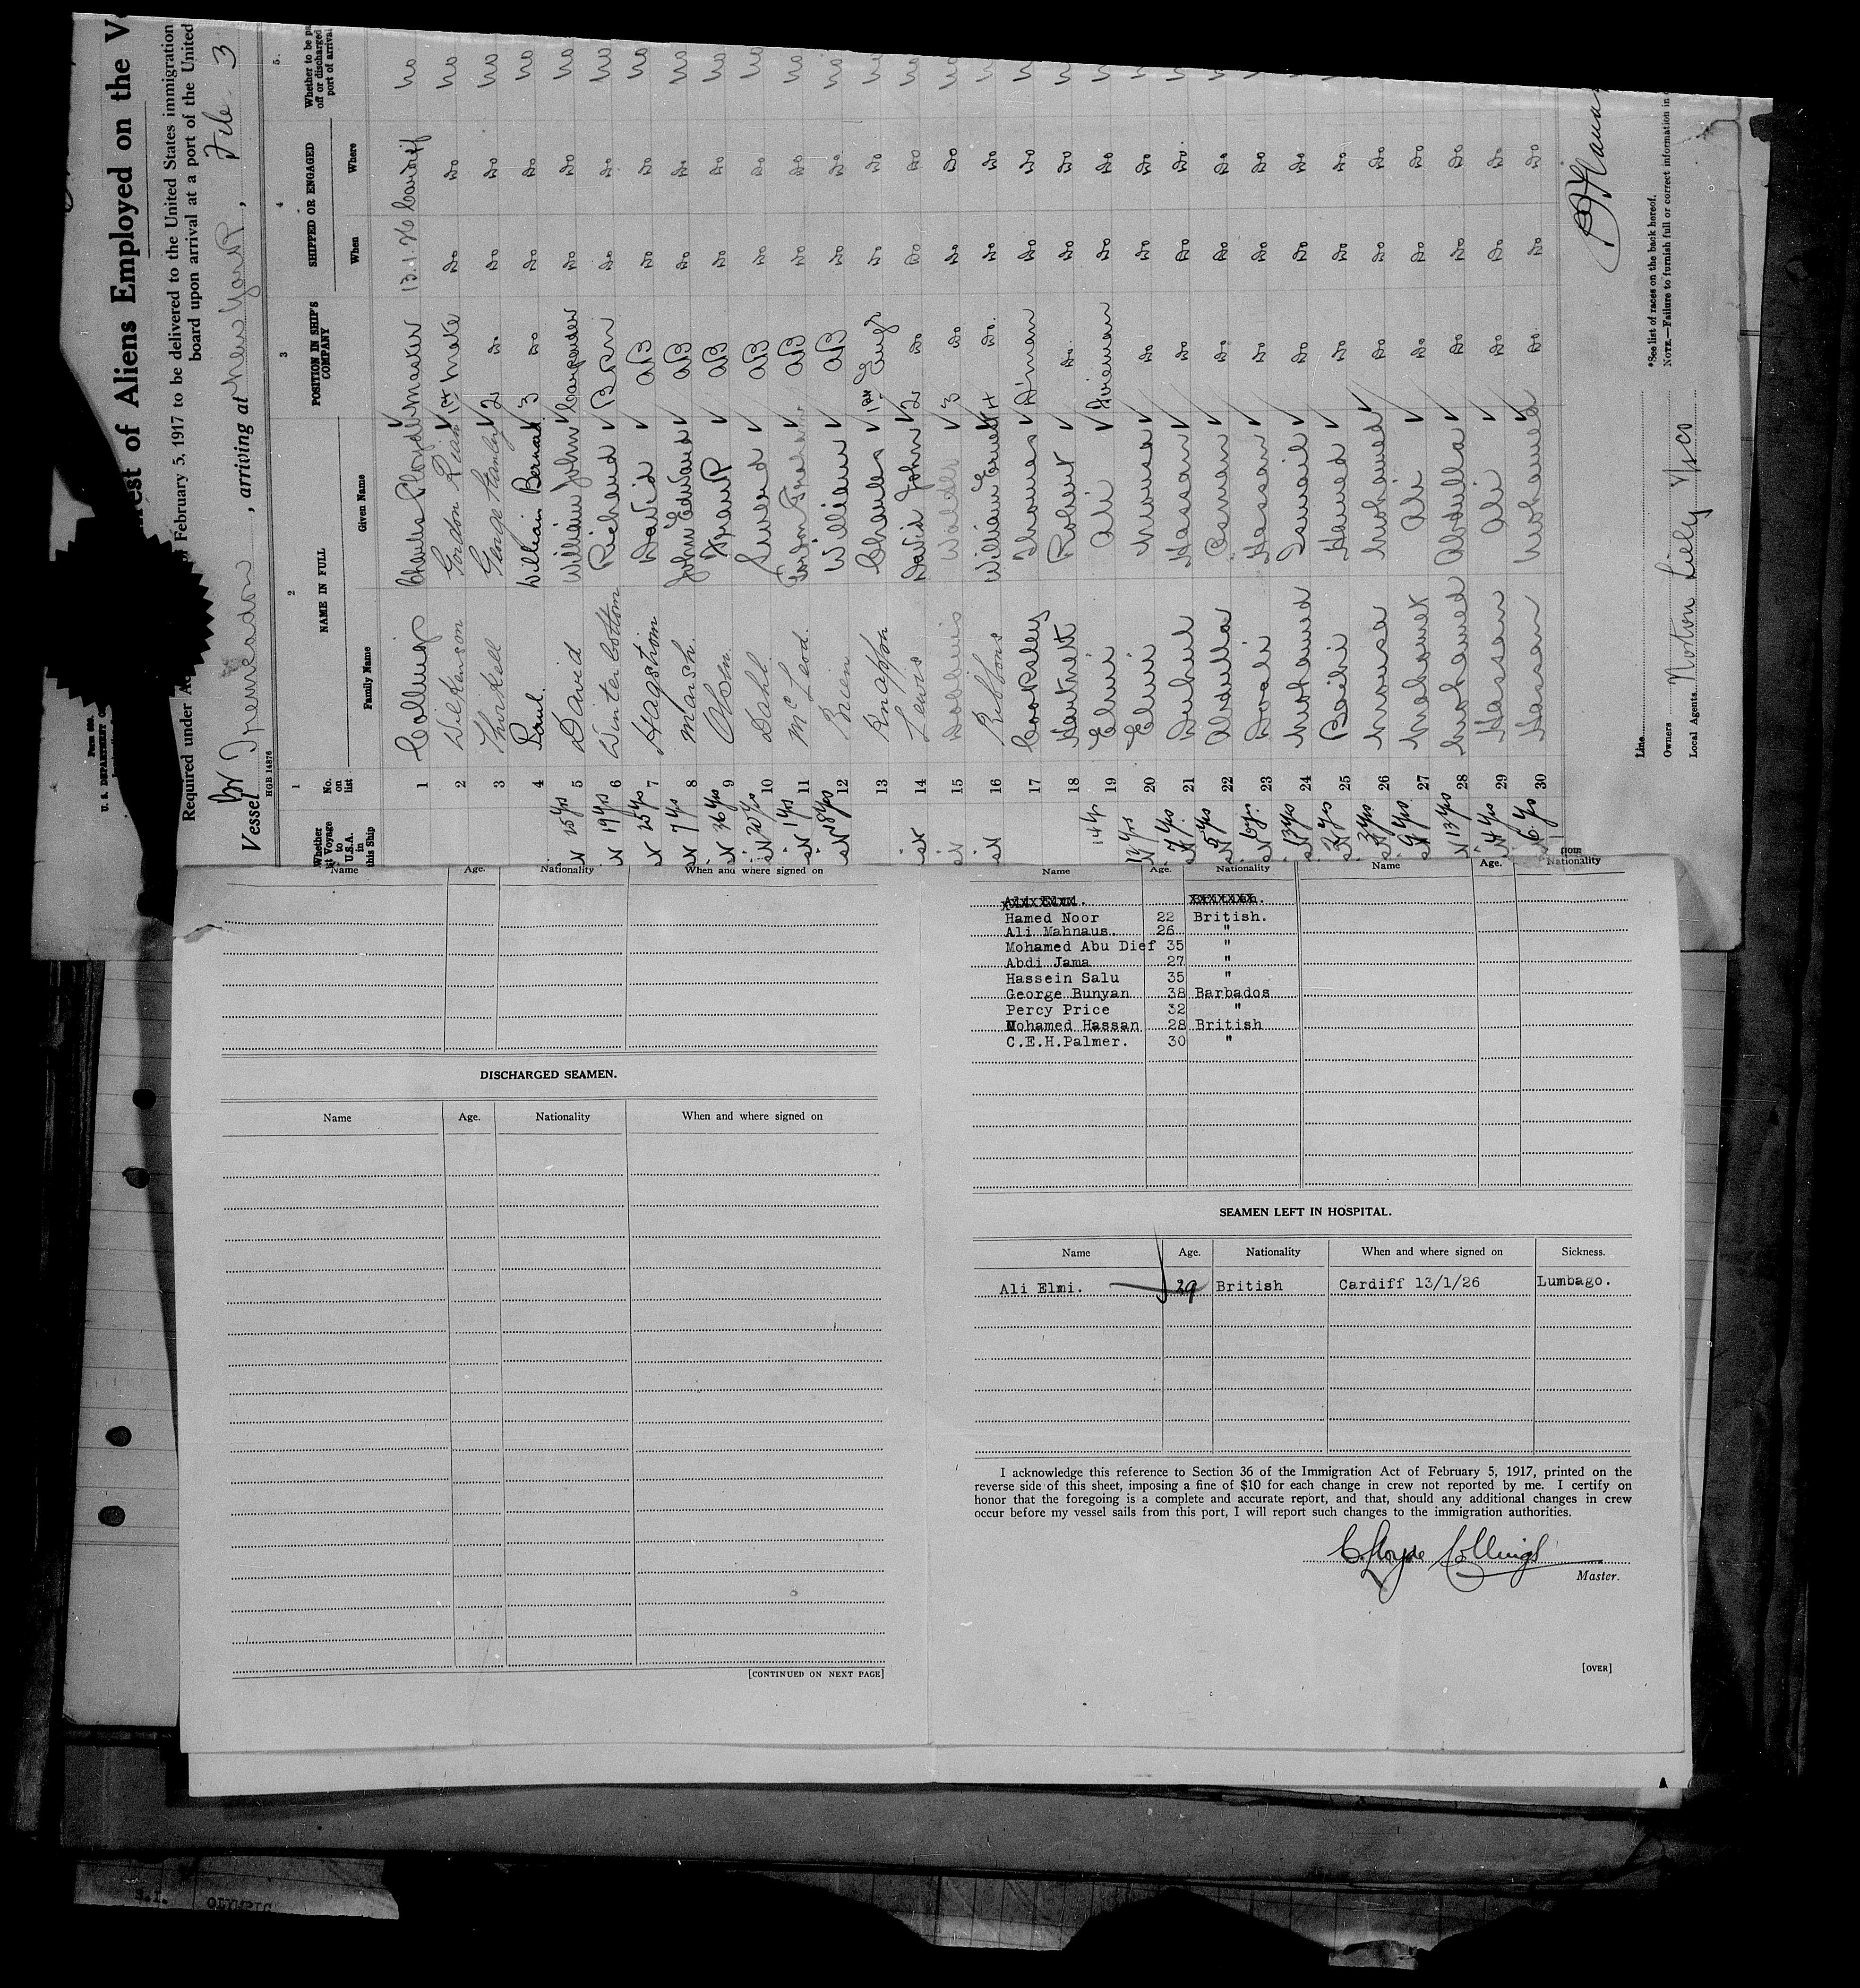 List of Aliens Employed on the
February 5, 1917 to be delivered to the United States immigration
board upon arrival at a port of the United
Form 680.
U. S. DEPARTMENT
Required under
Vessel , arriving at New York, Feb. 3
HGB 14876
1 2 3 4 5
Whether Voyage to U.S.A. in this Ship
No. on list
NAME IN FULL
Family Name Given Name
POSITION IN SHIP'S COMPANY
SHIPPED OR ENGAGED
When Where
Whether to be
off or discharged
port of arrival
1 Collings Charles Master 13.1.26 Cardiff no
2 Wilkenson Gordon 1st Mate Do Do no
3 Thirkell George Stanley 2 Do Do Do no
4 Paul. William Bernard 3 Do Do Do no
25 yrs 5 David William John Carpenter Do Do no
19 yrs 6 Winterbottom Richard Do Do no
25 yrs 7 Hagstrom David AB Do Do no
7 yrs 8 Marsh. John Edward AB Do Do no
36 yrs 9 Olsen. AB Do Do no
10 Dahl. AB Do Do no
1 yrs 11 McLeod. AB Do Do no
18 yrs 12 Brien William AB Do Do no
13 Knapps Charles 1st Engr Do Do
14 Lewis David John 2 Do Do Do
15 3 Do Do Do
16 Ribbons William Ernest 4 Do. Do Do
17 Cooksley Thomas Do Do
18 Hartnett Robert Do Do Do
14 yr 19 Elmi Ali Fireman Do Do
12 yrs 20 Elmi Mousa Do Do Do
7 yrs 21 Hassan Do Do Do
5 yrs 22 Abdulla Do Do Do
6 yr. 23 Hassan Do Do Do
13 yrs 24 Mohamed Ismail Do Do Do
25 Hamed Do Do Do
26 Mousa Mohamed Do Do Do
9 yrs 27 Mahomet Ali Do Do Do
13 yrs 28 Mohamed Abdulla Do Do Do
4 yrs 29 Hassan Ali Do Do Do
6 yrs 30 Hassan Mohamed Do. Do Do
Line
Owners
Local Agents Norton Lilly & Co
*See list of races on the back hereof.
NOTE.—Failure to furnish full or correct information in
from
Name Age. Nationality When and where signed on
DISCHARGED SEAMEN.
Name Age. Nationality When and where signed on
[CONTINUED ON NEXT PAGE]
Name Age. Nationality Name Age. Nationality
Hamed Noor 22 British.
Ali Mahnaus. 26 "
Mohamed Abu Dief 35 "
Abdi Jama 27 "
Hassein Salu 35 "
George Bunyan 38 Barbados
Percy Price 32 "
Mohamed Hassan 28 British
C.E.H.Palmer. 30 "
SEAMEN LEFT IN HOSPITAL.
Name Age. Nationality When and where signed on Sickness.
Ali Elmi. 29 British Cardiff 13/1/26 Lumbago.
I acknowledge this reference to Section 36 of the Immigration Act of February 5, 1917, printed on the
reverse side of this sheet, imposing a fine of $10 for each change in crew not reported by me. I certify on
honor that the foregoing is a complete and accurate report, and that, should any additional changes in crew
occur before my vessel sails from this port, I will report such changes to the immigration authorities.
Master.
[OVER]
S.I. OLYMPIC